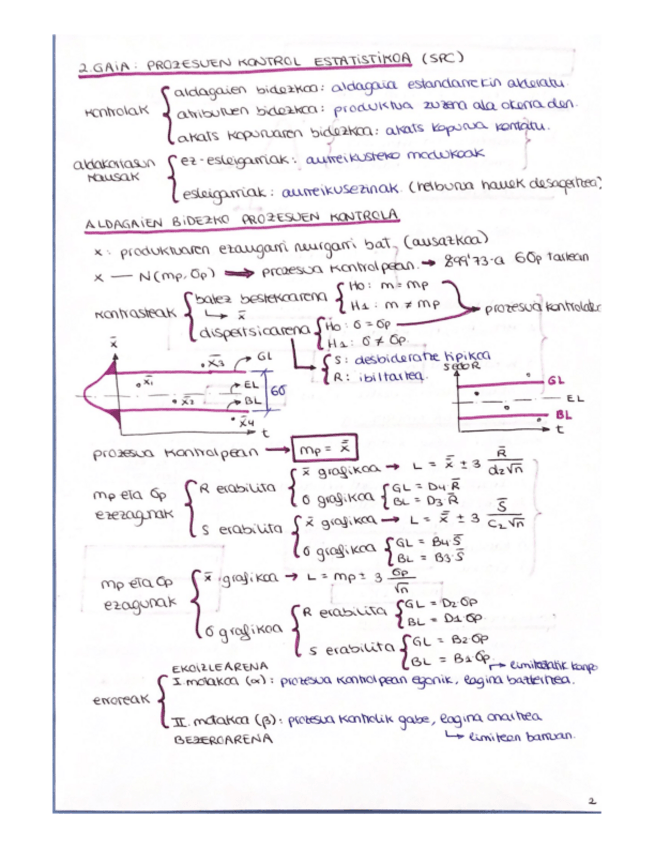 2.GAIA: PROZESUEN KONTROL ESTATISTIKOA (SPC)
kontrolak
aldagaien bidezkoa: aldagaia estandarrekin alderatu.
atributuen bidezkoa: produktua zuzena ala okerra den.
akats kopuruaren bidezkoa: akats kopurua kontatu.
aldakortasun kausak
ez-esleigarriak: aurreikusteko modukoak
esleigarriak: aurreikusezinak. (helburua hauek desagertzea)
ALDAGAIEN BIDEZKO PROZESUEN KONTROLA
x: produktuaren ezaugarri neurgarri bat, (ausazkoa)
x — N(mp, σp) → prozesua kontrolpean. → 899'73-a 6σp tartean
kontrasteak
batez bestekoarena
H0: m = mp
H1: m ≠ mp
→ prozesua kontrolatzeko
↳ x̄
dispertsioarena
H0: σ = σp
H1: σ ≠ σp
S: desbideratze tipikoa
R: ibiltartea.
x̄
x̄1
x̄2
x̄3
x̄4
GL
EL
BL
6σ
t
S edo R
GL
EL
BL
t
prozesua kontrolpean → mp = x̿
mp eta σp ezezagunak
R erabilita
x̄ grafikoa → L = x̿ ± 3 R̄ / d2√n
σ grafikoa
GL = D4·R̄
BL = D3·R̄
S erabilita
x̄ grafikoa → L = x̿ ± 3 S̄ / C2√n
σ grafikoa
GL = B4·S̄
BL = B3·S̄
mp eta σp ezagunak
x̄ grafikoa → L = mp ± 3 σp / √n
σ grafikoa
R erabilita
GL = D2·σp
BL = D1·σp
S erabilita
GL = B2·σp
BL = B1·σp
EKOIZLEARENA
→ limiteetatik kanpo
erroreak
I. motakoa (α): prozesua kontrolpean egonik, lagina baztertzea.
II. motakoa (β): prozesua kontrolik gabe, lagina onartzea
BEZEROARENA
↳ limiteen barruan.
2